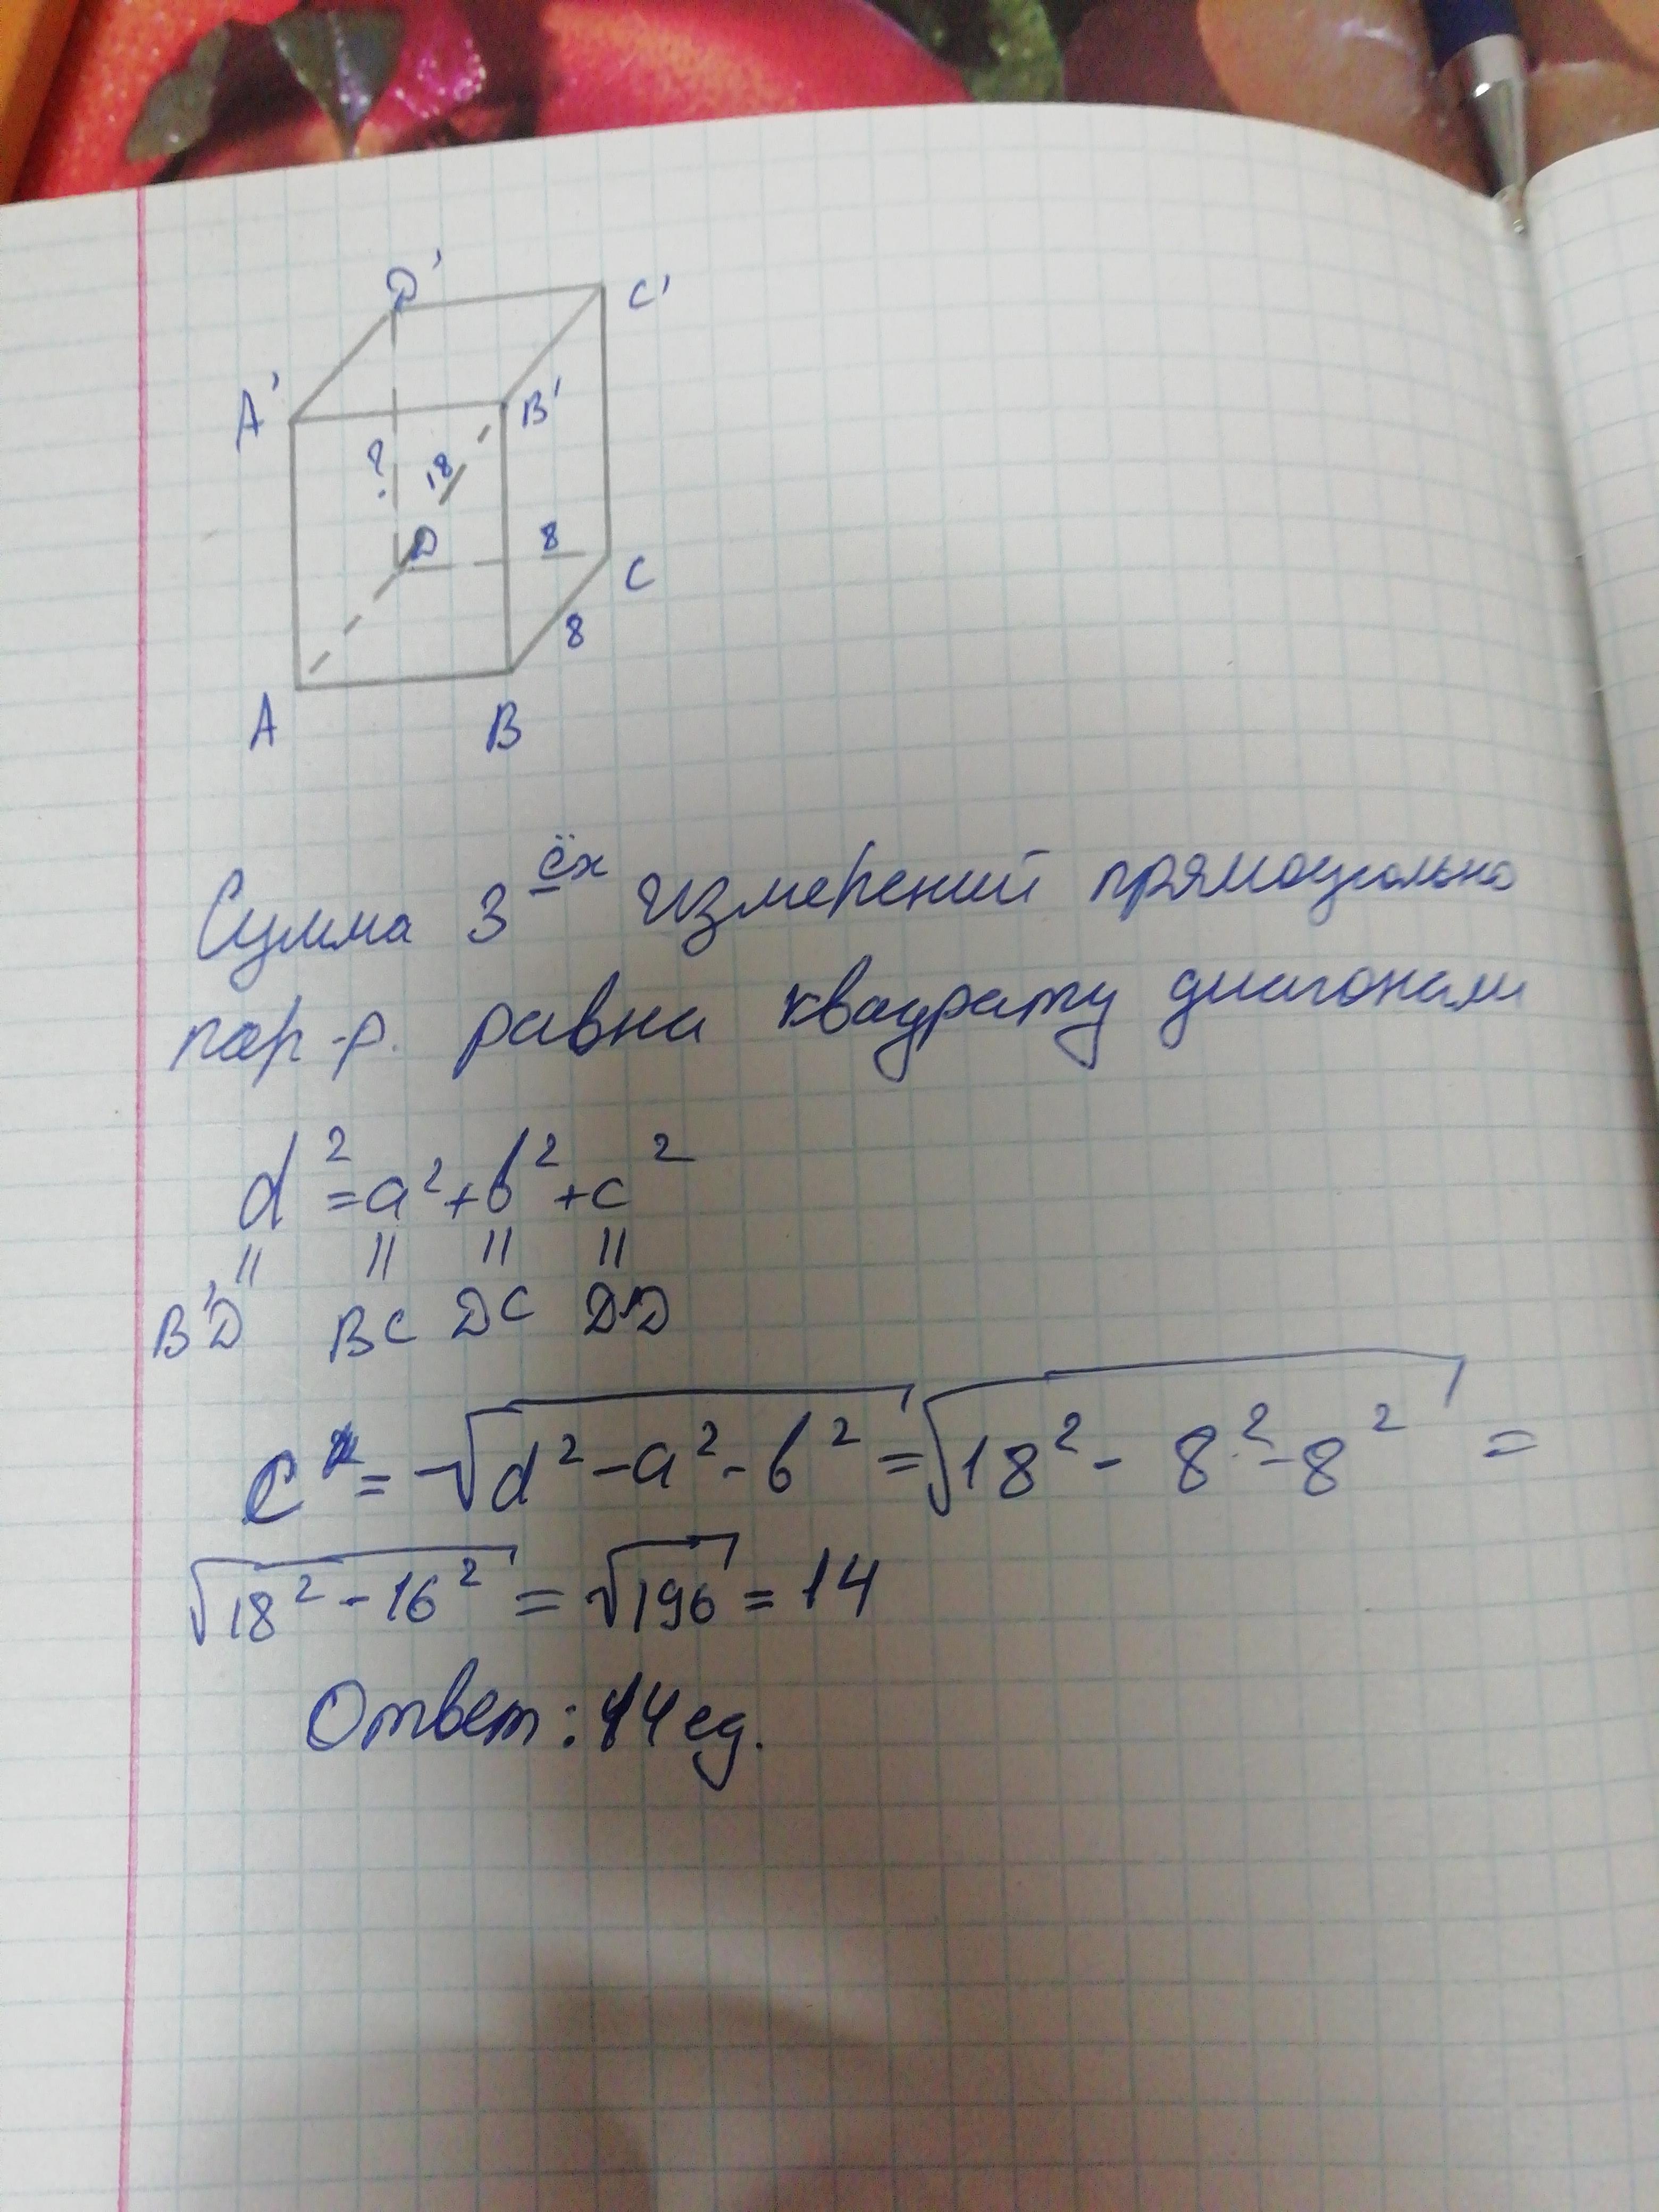 D' C'
A' B'
? 18
D 8
C
8
A B
Сумма 3ёх измерений прямоугольно
пар-р. равна квадрату диагонали
d² = a² + b² + c²
|| || || ||
B'D BC DC D'D
c = √d² - a² - b² = √18² - 8² - 8² =
√18² - 16² = √196 = 14
Ответ: 14 ед.